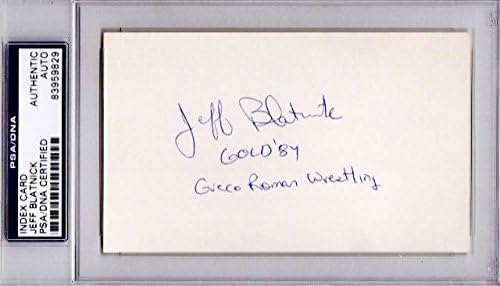 PSA/DNA
INDEX CARD
JEFF BLATNICK
PSA/DNA CERTIFIED
AUTHENTIC
AUTO
83959829
Jeff Blatnick
GOLD '84
Greco Roman Wrestling